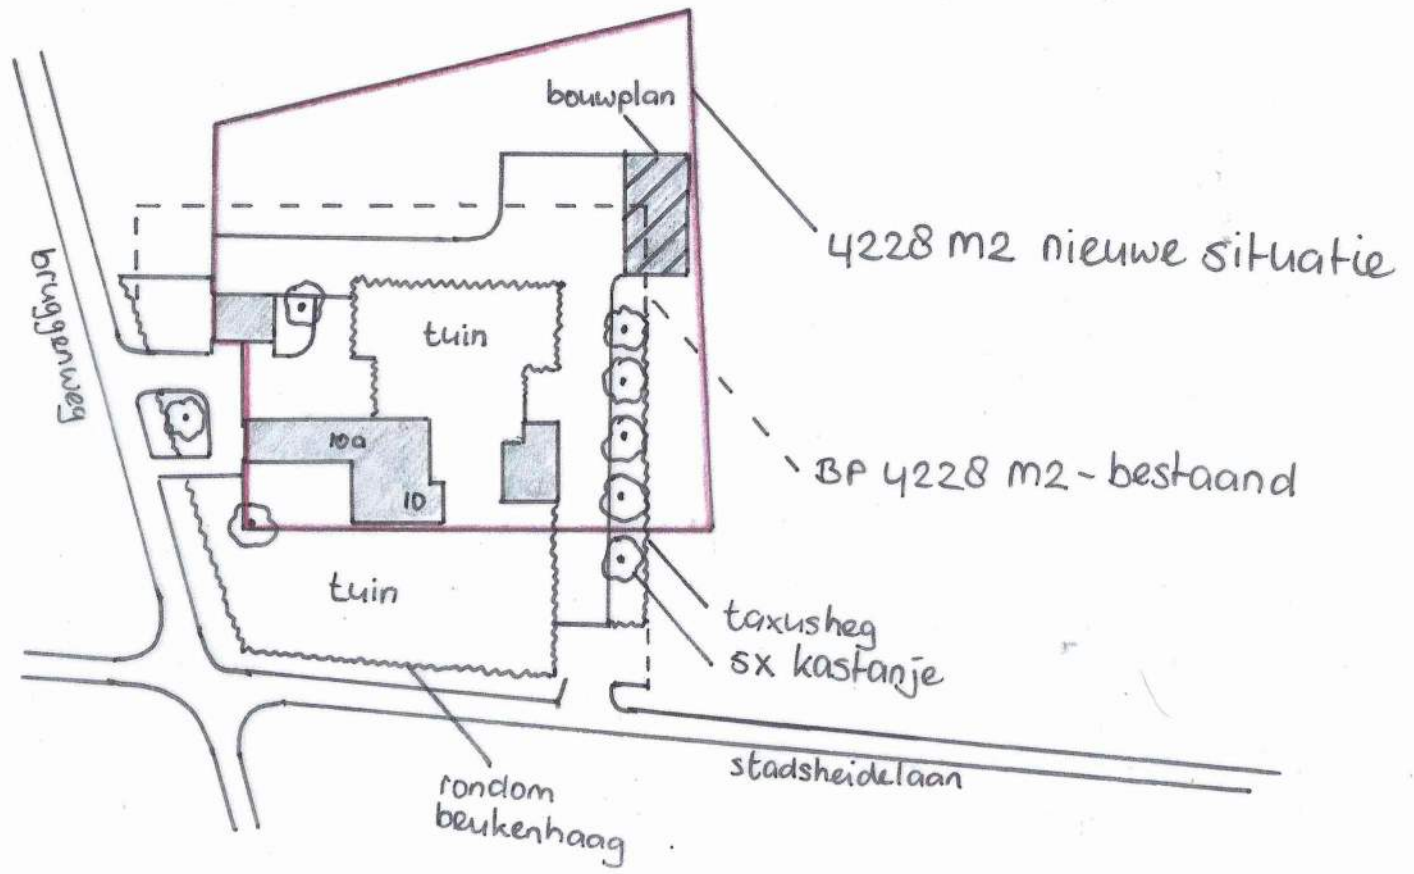 bouwplan
4228 m2 nieuwe situatie
bruggenweg
tuin
10a
10
BP 4228 m2 - bestaand
tuin
taxusheg
5x kastanje
stadsheidelaan
rondom
beukenhaag